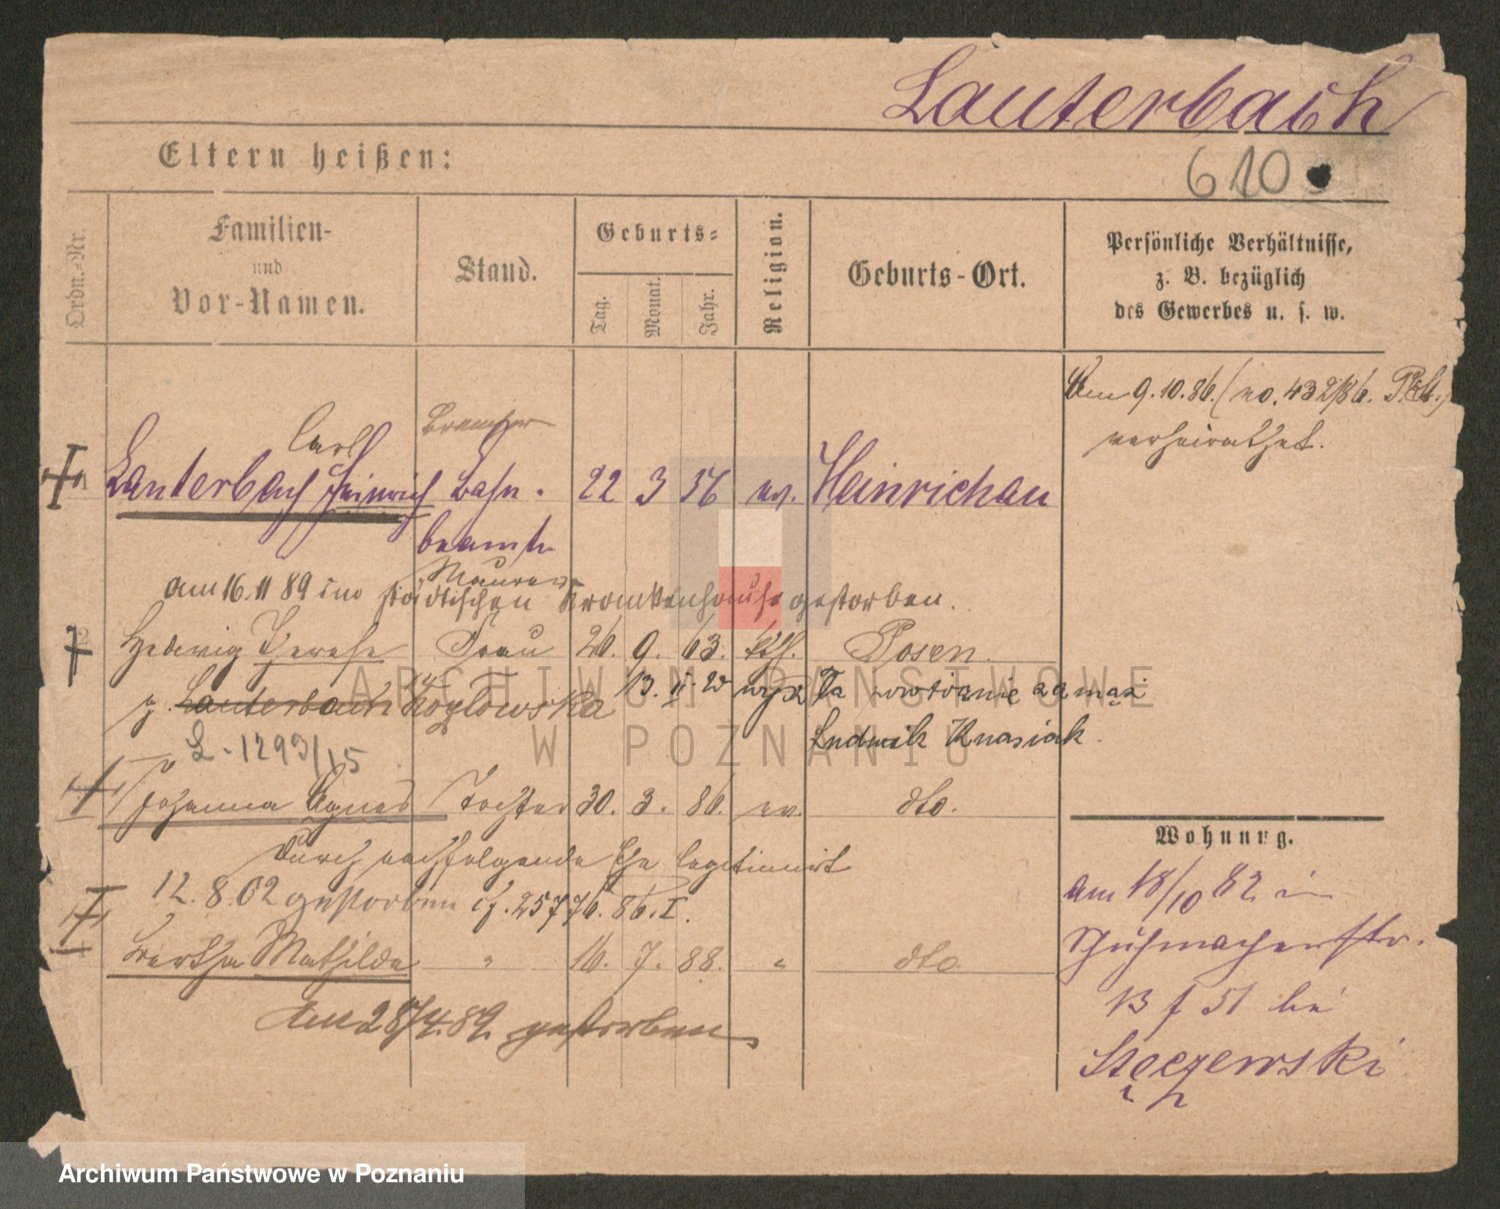 Lauterbach
Eltern heißen:
610
Ordn.-Nr.
Familien-
und
Vor-Namen.
Stand.
Geburts-
Tag.
Monat.
Jahr.
Religion.
Geburts-Ort.
Persönliche Verhältnisse,
z. B. bezüglich
des Gewerbes u. s. w.
Am 9.10.86. (No. 432/86.
verheirathet.
Carl
Bremser
Lauterbach Heinrich Bahn- 22 3 56 ev. Heinrichau
beamter
Maurer
am 16.11 89 im städtischen Krankenhause gestorben.
Hedwig Therese Frau 26. 9. 63. kth. Posen.
Lauterbach Kozlowska 13. II. 20 Za zamąż
Ludwik
L-1293/15
Johanna Agnes Tochter 30. 3. 86. ev. dto.
Durch nachfolgende Ehe legitimirt
12.8.02 gestorben 86. I.
Bertha Mathilde " 16. 7. 88. " dto.
Am 28/4.89 gestorben
Wohnung.
am 18/10 82 in
Schuhmacherstr.
13 f 51 bei
Szczewski
ARCHIWUM PAŃSTWOWE
W POZNANIU
Archiwum Państwowe w Poznaniu